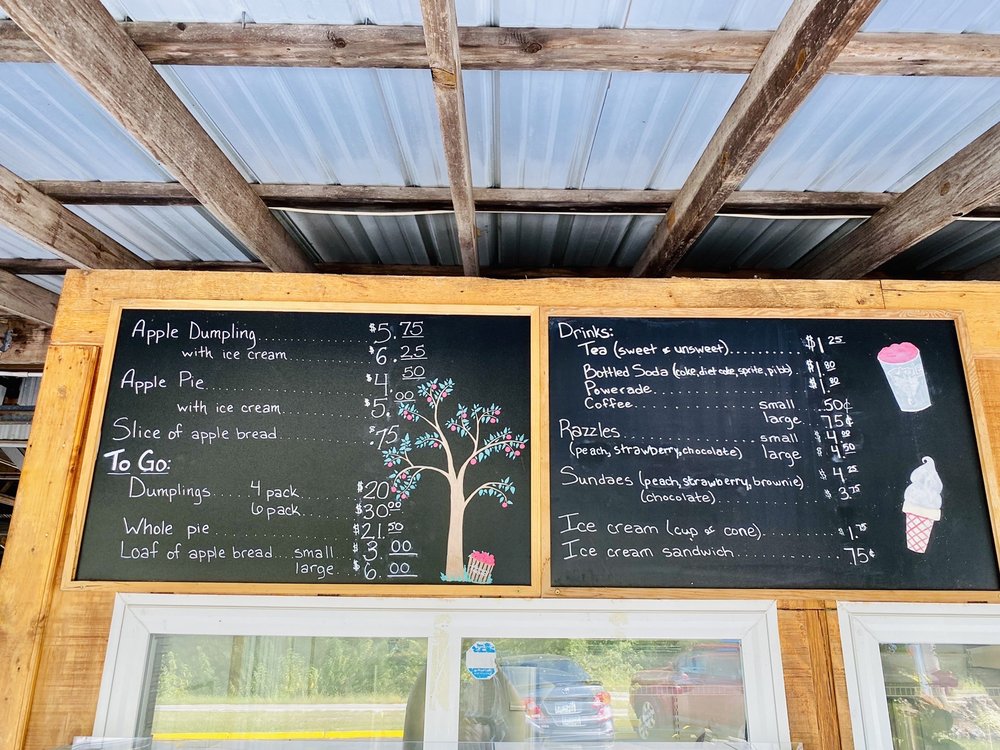 Apple Dumpling.......... $5.75
with ice cream......... $6.25
Apple Pie................ $4.50
with ice cream......... $5.00
Slice of apple bread....... $.75
To Go:
Dumplings.... 4 pack....... $20
6 pack....... $30.00
Whole pie................ $21.50
Loaf of apple bread.... small.... $3.00
large.... $6.00
Drinks:
Tea (sweet & unsweet)........... $1.25
Bottled Soda (coke, diet coke, sprite, pibb).. $1.80
Powerade....................... $1.80
Coffee................ small .50¢
large .75¢
Razzles................ small $4.00
(peach, strawberry, chocolate) large $4.50
Sundaes (peach, strawberry, brownie) $4.25
(chocolate)............ $3.75
Ice cream (cup or cone)......... $1.75
Ice cream sandwich............. .75¢